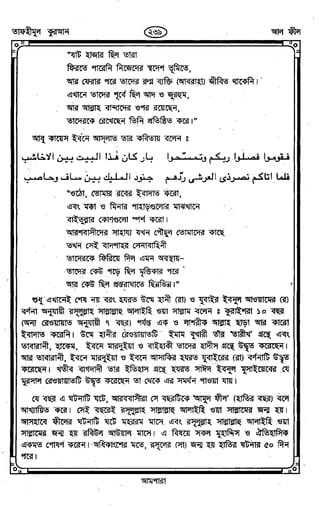 তাফহীমুল কুরআন
২৩৯
আল ফীল
"ষাট হাজার ছিল তারা
ফিরতে পারেনি নিজেদের স্বদেশ ভূমিতে,
আর ফেরার পরে তাদের রুগ্ন ব্যক্তি (আবরাহা) জীবিত থাকেনি।
এখানে তাদের পূর্বে ছিল আদ ও জুরহুম,
আর আল্লাহ বান্দাদের ওপর রয়েছেন,
তাদেরকে রেখেছেন তিনি প্রতিষ্ঠিত করে।"
আবু কায়েস ইবনে আসলাত তার কবিতায় বলেন ঃ
فقوموا فصلوا ربكم وتمسحوا بأركان هذا البيت بين الاخاشب
فلما أتاكم نصر ذي العرش ردهم جنود المليك بين ساف وحاصب
"ওঠো, তোমার রবের ইবাদাত করো,
এবং মক্কা ও মিনার পাহাড়গুলোর মাঝখানে
বাইতুল্লার কোণগুলো স্পর্শ করো।
আরশবাসীদের সাহায্য যখন পৌঁছুল তোমাদের কাছে
তখন সেই বাদশাহর সেনাবাহিনী
তাদেরকে ফিরিয়ে দিল এমন অবস্থায়–
তাদের কেউ পড়ে ছিল মৃত্তিকার পরে
আর কেউ ছিল প্রস্তরাঘাতে ছিন্নভিন্ন।"
শুধু এখানেই শেষ নয় বরং হযরত উম্মে হানী (রা) ও যুবাইর ইবনুল আওয়ামের (রা)
বর্ণনা অনুযায়ী রসূলুল্লাহ সাল্লাল্লাহু আলাইহি ওয়া সাল্লাম বলেন ঃ কুরাইশরা ১০ বছর
(অন্য রেওয়ায়াত অনুযায়ী ৭ বছর) পর্যন্ত এক ও লাশরীক আল্লাহ ছাড়া আর কারো
ইবাদাত করেনি। উম্মে হানীর রেওয়ায়াতটি ইমাম বুখারী তাঁর 'তারীখ' গ্রন্থে এবং
তাবারানী, হাকেম, ইবনে মারদুইয়া ও বাইহাকী তাদের হাদীস গ্রন্থে উদ্ধৃত করেছেন।
আর তাবারানী, ইবনে মারদুইয়া ও ইবনে আসাকির হযরত যুবাইরের (রা) বর্ণনাটি উদ্ধৃত
করেছেন। খতীব বাগদাদী তার ইতিহাস গ্রন্থে হযরত সাঈদ ইবনুল মুসাইয়েবের যে
মুরসাল রেওয়ায়াতটি উদ্ধৃত করেছেন তা থেকে এর সমর্থন পাওয়া যায়।
যে বছর এ ঘটনাটি ঘটে, আরববাসীরা সে বছরটিকে 'আমুল ফীল' (হাতির বছর) বলে
আখ্যায়িত করে। সেই বছরেই রসূলুল্লাহ সাল্লাল্লাহু আলাইহি ওয়া সাল্লামের জন্ম হয়।
আসহাবে ফীলের ঘটনাটি ঘটে মহররম মাসে এবং রসূলুল্লাহ সাল্লাল্লাহু আলাইহি ওয়া
সাল্লামের জন্ম হয় রবিউল আউয়াল মাসে। এ বিষয়ে সকল মুহাদ্দিস ও ঐতিহাসিক
একমত পোষণ করেন। অধিকাংশের মতে, রসূলের (সা) জন্ম হয় হাতির ঘটনার ৫০ দিন
পরে।
আমপারা